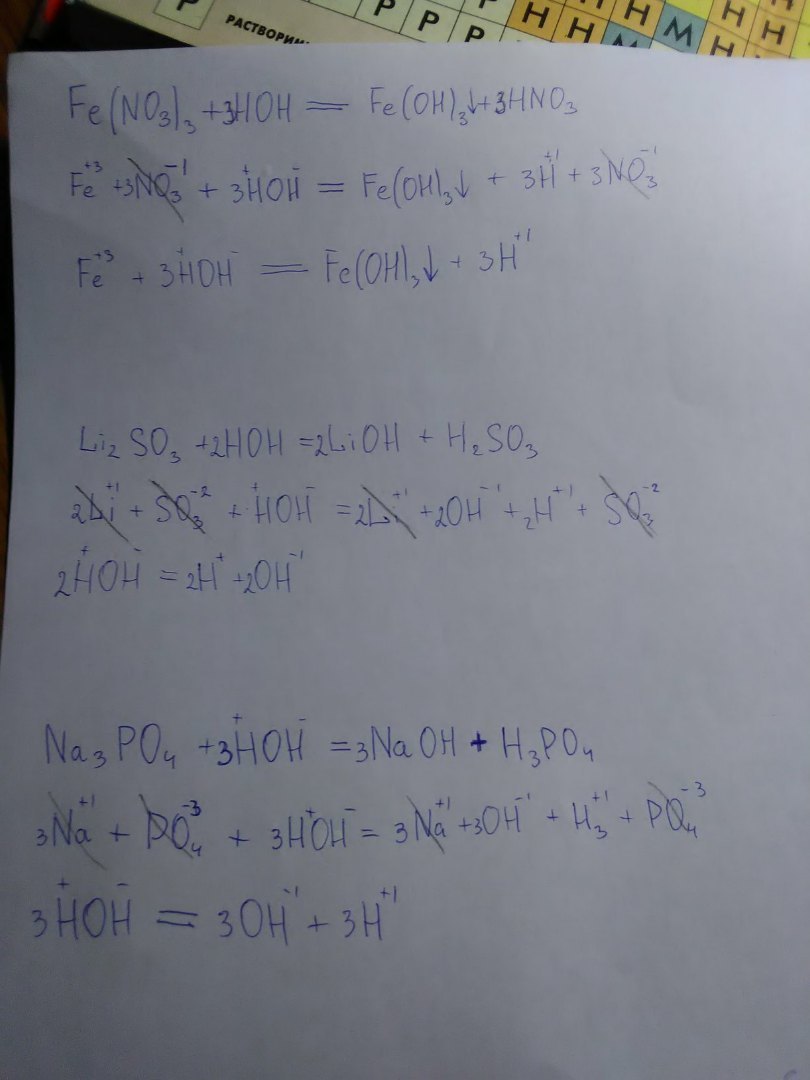 Р Р Р Р Н Н Н М Н Н Н Н
РАСТВОРИМ
Fe(NO₃)₃ + 3HOH = Fe(OH)₃↓ + 3HNO₃
Fe⁺³ + 3NO₃⁻¹ + 3H⁺OH⁻ = Fe(OH)₃↓ + 3H⁺¹ + 3NO₃⁻¹
Fe⁺³ + 3H⁺OH⁻ = Fe(OH)₃↓ + 3H⁺¹
Li₂SO₃ + 2HOH = 2LiOH + H₂SO₃
2Li⁺¹ + SO₃⁻² + H⁺OH⁻ = 2Li⁺¹ + 2OH⁻¹ + ₂H⁺¹ + SO₃⁻²
2H⁺OH⁻ = 2H⁺ + 2OH⁻¹
Na₃PO₄ + 3H⁺OH⁻ = 3NaOH + H₃PO₄
3Na⁺¹ + PO₄⁻³ + 3H⁺OH⁻ = 3Na⁺¹ + 3OH⁻¹ + H₃⁺¹ + PO₄⁻³
3H⁺OH⁻ = 3OH⁻¹ + 3H⁺¹